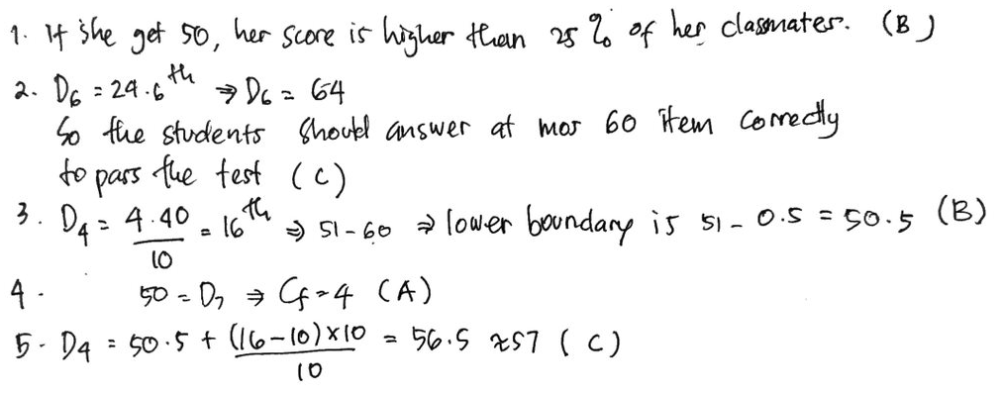 1. If she get 50, her score is higher than 25 % of her classmates. (B)
2. D6 = 24.6th ⇒ D6 = 64
So the students should answer at mos 60 item correctly
to pass the test (C)
3. D4 = 4.40/10 = 16th ⇒ 51-60 ⇒ lower boundary is 51 - 0.5 = 50.5 (B)
4. 50 = D7 ⇒ Cf = 4 (A)
5. D4 = 50.5 + (16-10)×10/10 = 56.5 ≈ 57 (C)